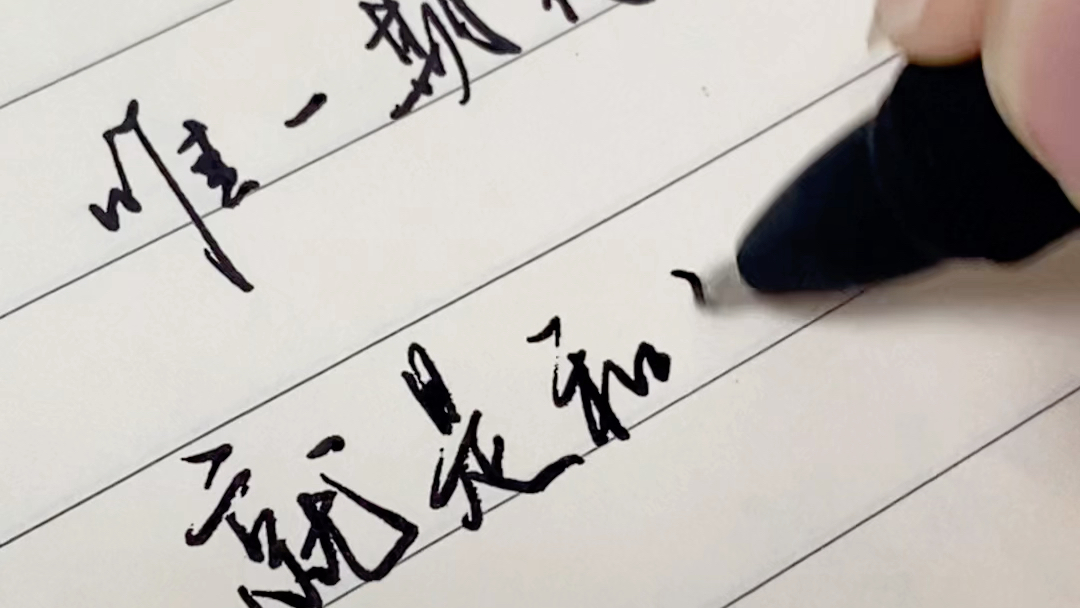 唯一期
就是和